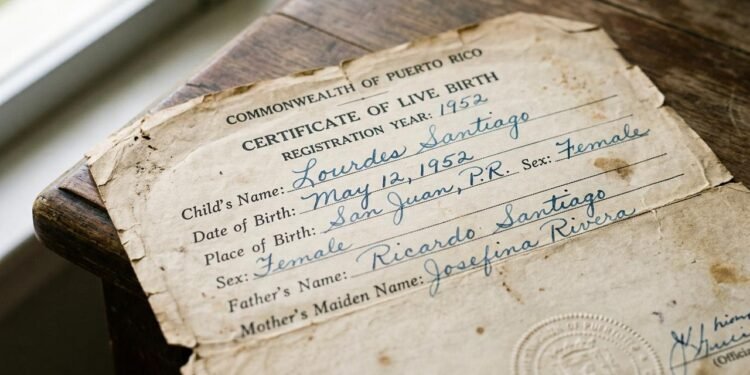 COMMONWEALTH OF PUERTO RICO
CERTIFICATE OF LIVE BIRTH
REGISTRATION YEAR: 1952
Child's Name: Lourdes Santiago
Date of Birth: May 12, 1952
Place of Birth: San Juan, P.R. Sex: Female
Sex: Female
Father's Name: Ricardo Santiago
Mother's Maiden Name: Josefina Rivera
OF PUERTO R
(Offici